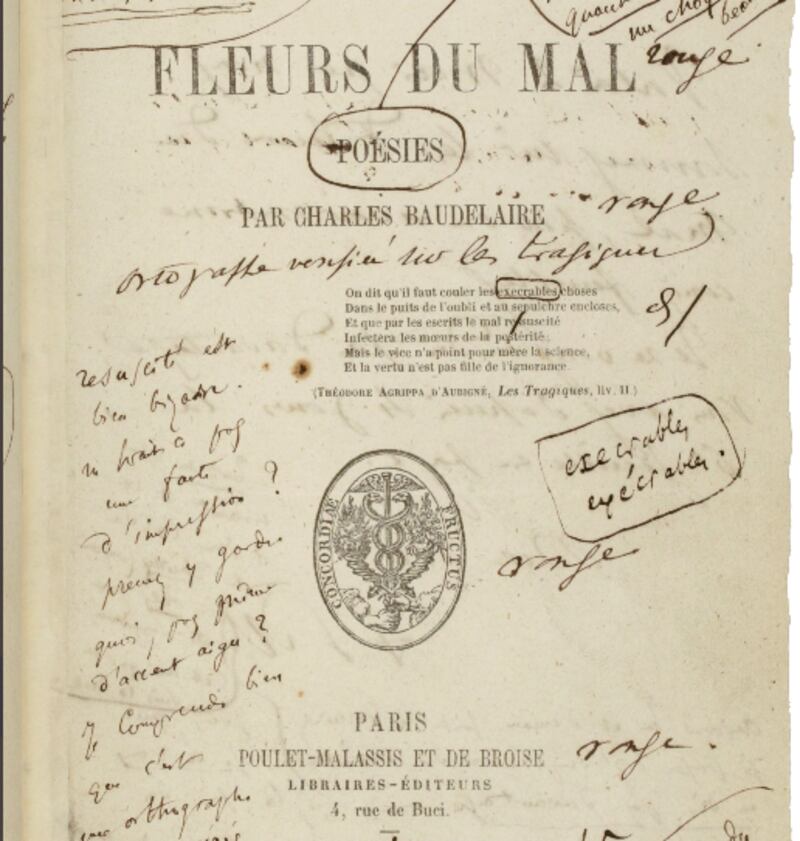 quand
un choq
rouge
FLEURS DU MAL
POÉSIES
PAR CHARLES BAUDELAIRE
rouge
ortographe verifiée sur les tragiques
On dit qu'il faut couler les execrables choses
Dans le puits de l'oubli et au sepulchre encloses,
Et que par les escrits le mal resuscité
Infectera les mœurs de la postérité;
Mais le vice n'a point pour mère la science,
Et la vertu n'est pas fille de l'ignorance.
(THÉODORE AGRIPPA D'AUBIGNÉ, Les Tragiques, liv. II.)
resuscité est
bien bizarre.
ne serait ce pas
une faute
d'impression ?
prenez y garde
quoi, pas même
d'accent aigu ?
Je comprends bien
que c'est
une orthographe
execrables
exécrables.
CONCORDIÆ FRUCTUS
rouge
PARIS
POULET-MALASSIS ET DE BROISE
rouge.
LIBRAIRES-ÉDITEURS
4, rue de Buci.
du